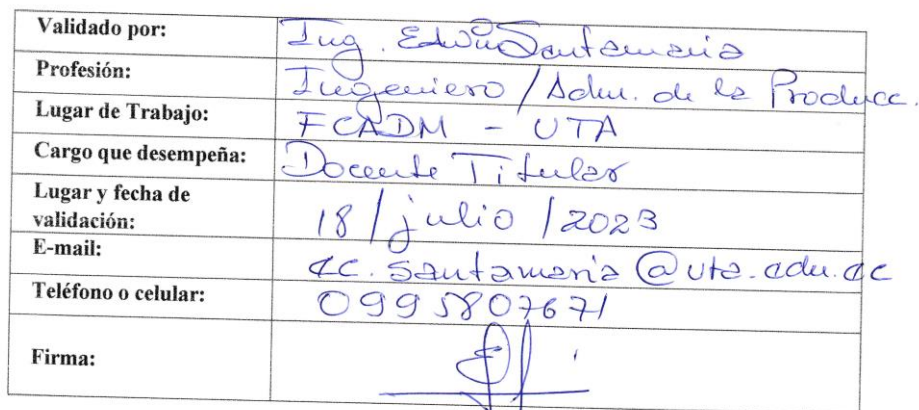 Validado por: Ing. Edwin Santamaria
Profesión: Ingeniero / Adm. de la Producc.
Lugar de Trabajo: FCADM - UTA
Cargo que desempeña: Docente Titular
Lugar y fecha de
validación: 18 / julio / 2023
E-mail: ec.santamaria@uta.edu.ec
Teléfono o celular: 0995807671
Firma: